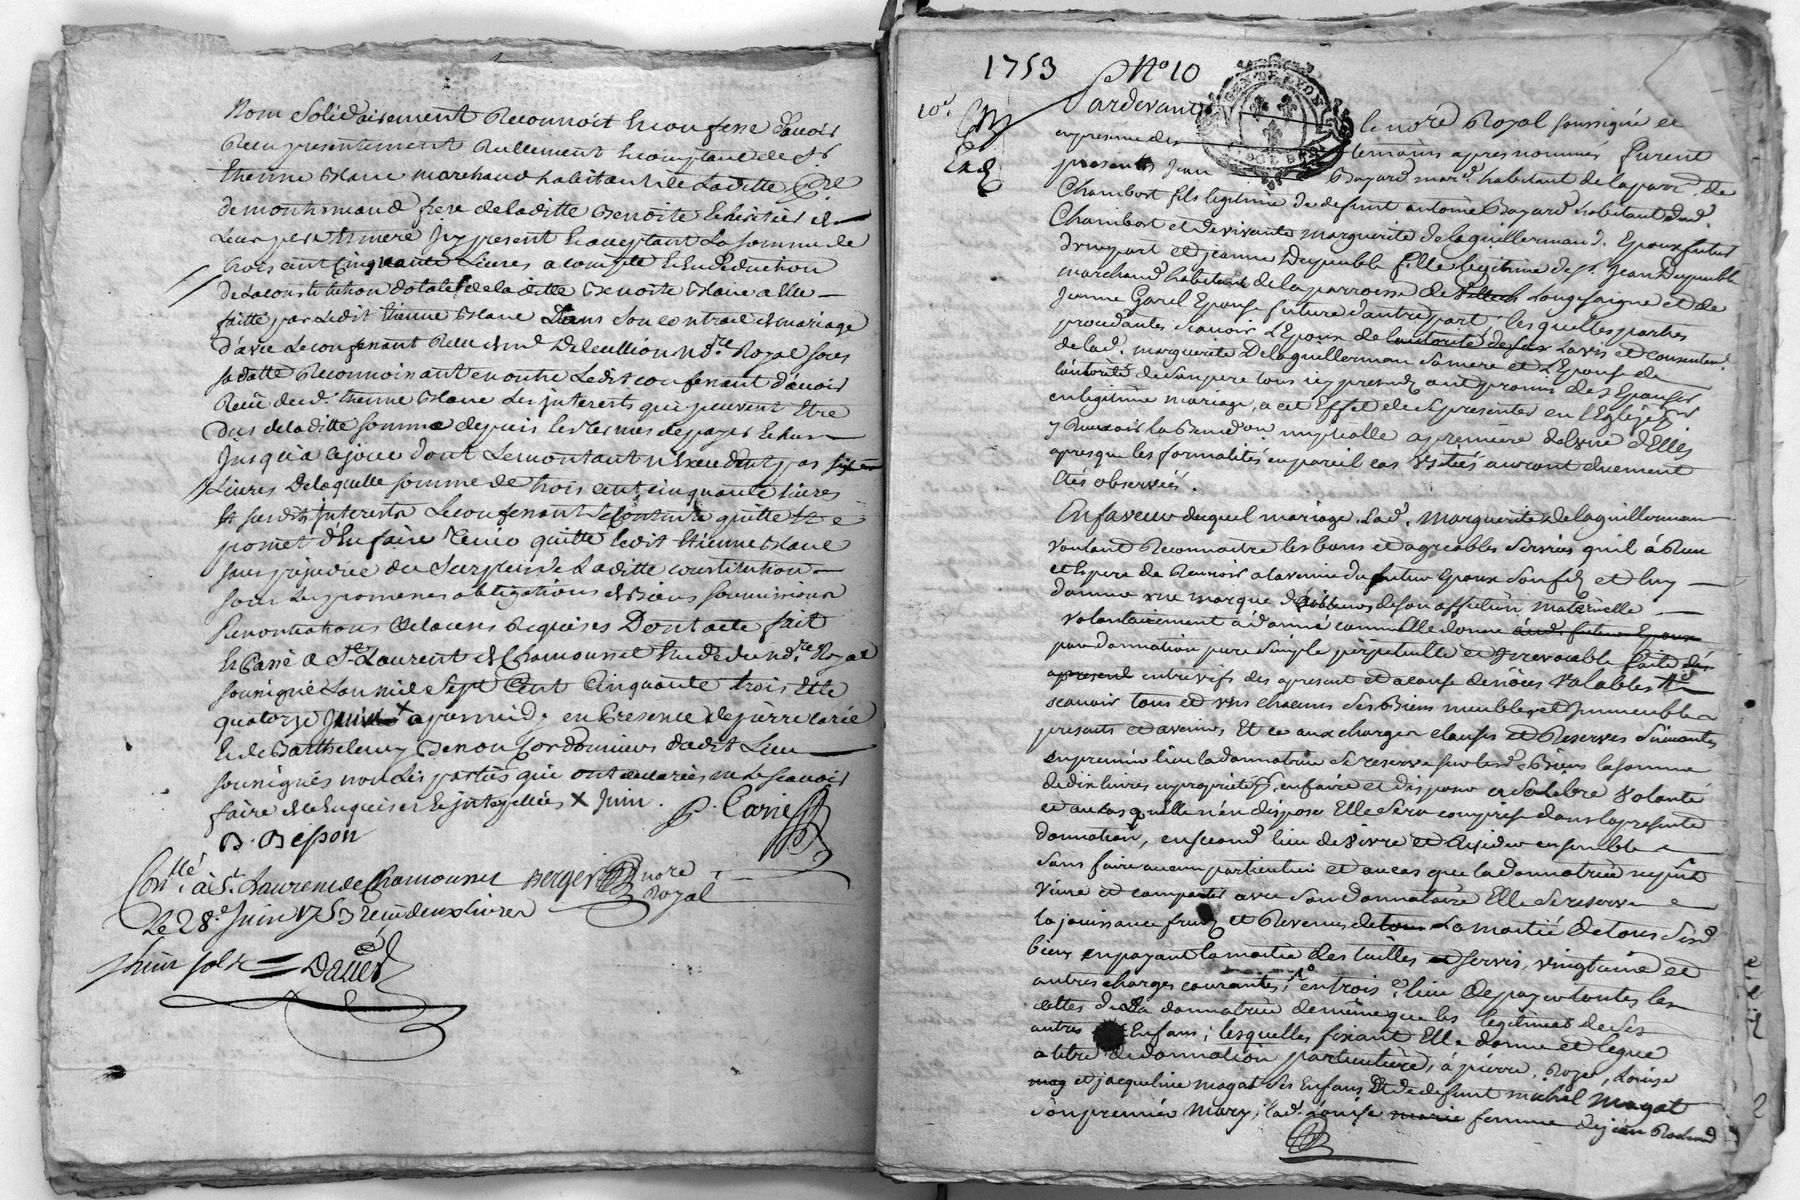 nom solidairement Reconnoit et confesse d'avoir
Receu presentement Reellement et comptant de Sr
Etienne Blanc marchand habitant de laditte
de montromand frere de laditte Benoite et heritier de
leurs pere et mere Icy present et acceptant La somme de
trois cent Cinquante Livres a compte et En deduction
de la constitution dotale de laditte Benoite Blanc a Elle
faitte par Ledit Etienne Blanc Dans son contract de mariage
d'avec Le confessant Receu et Royal sous
sa datte Reconnoissant en outre Ledit confessant d'avoir
Receu dud. Etienne Blanc Les Interests qui peuvent Etre
dus de laditte somme depuis les termes de payer échus
Jusqu'à ce jour dont Le montant n'Excedent pas
Livres De laquelle somme de trois cent cinquante livres
et susdits Interests Le confessant se contente quitte et
promet d'En faire tenir quitte Ledit Etienne Blanc
sans prejudice du Surplus de Laditte constitution
sous Les promesses obligations de Biens soumissions
Renontiations et clauses Requises Dont acte fait
et Passé a St. Laurent de Chamousset Etude du nore. Royal
soussigné L'an mil sept Cent Cinquante trois et le
quatorze X apres midy en Presence de pierre Carié
et de Barthelemy Besson Cordonniers dudit Lieu
soussignés non Les parties qui ont declarées ne le scavoir
faire de ce Enquises et Interpellées X Juin.
P. Carié
B. Besson
Conllé. à St. Laurent de Chamousset Berger nore
Royal
Le 28e Juin 1753 reçu deux livres
huit sols Daver
1753 No 10
10e. Pardevant le nore Royal soussigné et
en presence des temoins apres nommés furent
Exd
presents Jean Bayard mard. habitant de la parr. de
Chambost fils legitime de defunt antoine Bayard habitant dud.
Chambost et de vivante marguerite delaguillermand. Epoux futur
d'une part et jeanne Dupeuble fille legitime de Sr. Jean Dupeuble
marchand habitant de la parroisse de Longessaigne et de
Jeanne Garel Epouse future d'autre part lesquelles parties
procedantes scavoir L'Epoux de l'autorité de ses L'avis et consentemt.
de lad. marguerite Delaguillermand sa mere et L'Epouse de
l'autorité de son pere tous icy presents ont promis de s'Epouser
en legitime mariage, a cet Effet de se presenter en l'Eglise pr.
y Recevoir la Bened.on nuptialle a premiere d'elles
apres que les formalités en pareil cas Usitées auront duement
étés observées.
En faveur duquel mariage. Lad. marguerite delaguillermand
voulant Reconnoitre les bons et agreables services qu'il à Reçu
et Espere de Recevoir a l'avenir du futur Epoux son fils et luy
donner une marque de son affection maternelle
volontairement à donné comme Elle donne aud. futur Epoux
par donnation pure simple perpetuelle et Irrevocable faite dés
apresent entre vifs des apresent et a cause de nôces Valables
scavoir tous et uns chacuns ses Biens meubles et Immeubles
presents et avenirs, Et ce aux charges clauses et Reserves suivantes
En premier lieu la donnatrice se reserve sur lesd. Biens la somme
de dix livres en proprieté pr. en faire et disposer a sa libre volonté
et au cas qu'elle n'en dispose Elle sera comprise dans la presente
donnation, en second lieu de vivre et Resider ensemble
sans faire aucun particulier et au cas que la donnatrice ne put
vivre et compatir avec son donnataire Elle se reserve
la jouissance fruits et Revenus de tous la moitié de tous sesd.
biens en payant la moitié des tailles et servis, vingtieme et
autres charges courantes, en trois.e lieu de payer toutes les
dettes de la donnatrice de même que les legitimes de ses
autres Enfans; lesquelles fixant Elle donne et legue
a titre de donnation particuliere, à pierre, Roger, Louise
mag et jacqueline magat ses Enfans Et de defunt michel Magat
son premier mary, lad. Louise marie femme de jean